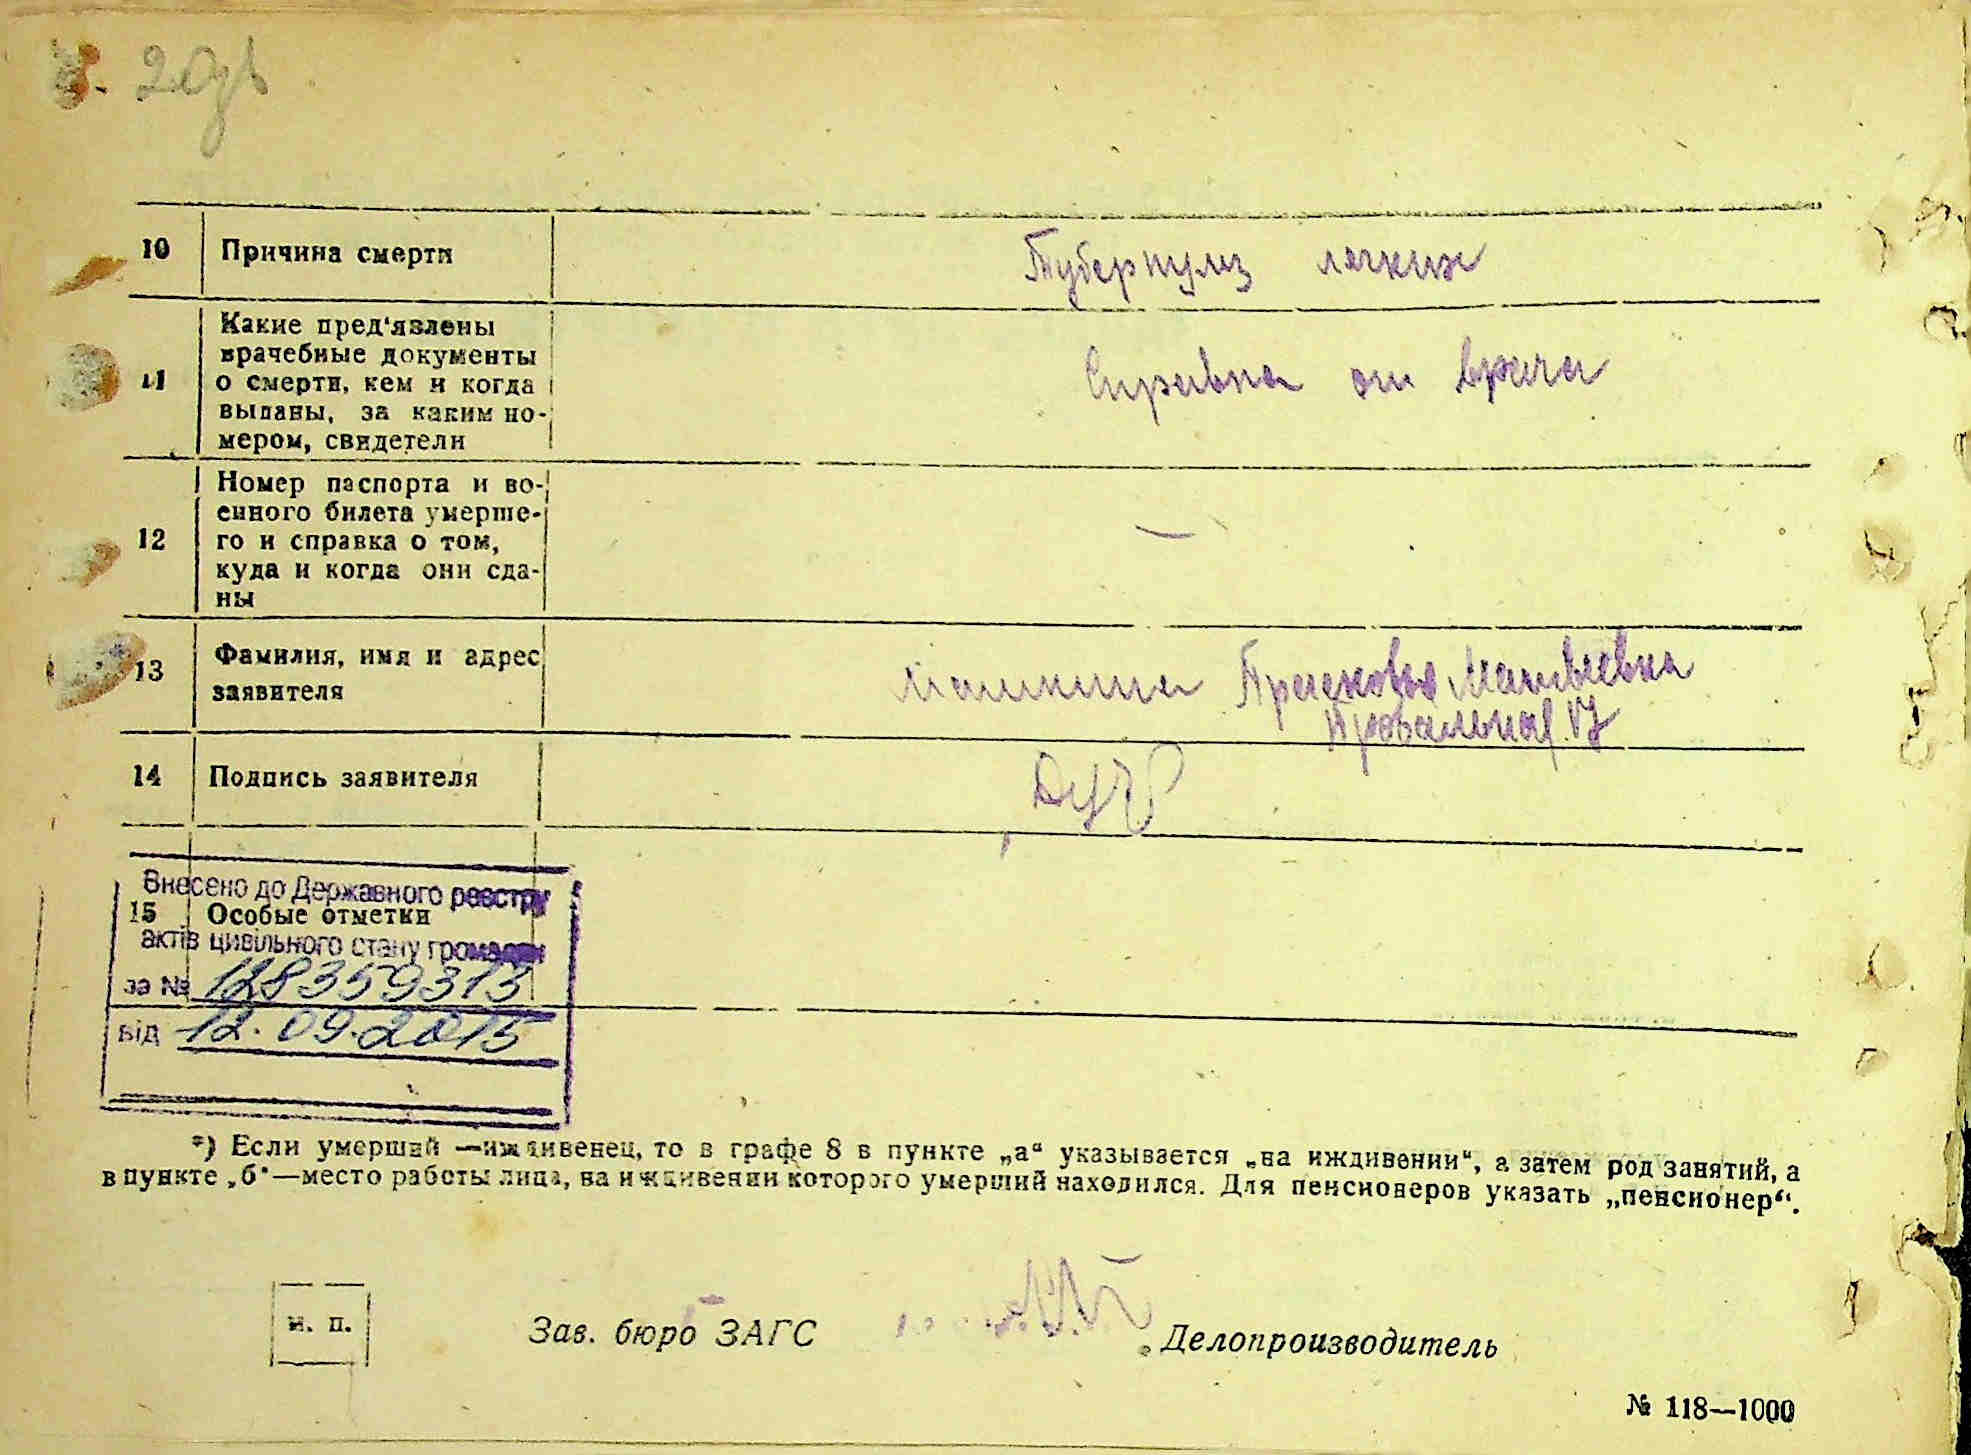 10 Причина смерти Туберкулез легких
11 Какие пред'явлены
врачебные документы
о смерти, кем и когда
выданы, за каким но-
мером, свидетели
Справка от врача
12 Номер паспорта и во-
енного билета умерше-
го и справка о том,
куда и когда они сда-
ны
—
13 Фамилия, имя и адрес
заявителя
Прасковья Матвеевна
14 Подпись заявителя
Внесено до Державного реєстру
15 Особые отметки
актів цивільного стану громадян
за № 128359313
від 12.09.2015
*) Если умерший —иждивенец, то в графе 8 в пункте „а“ указывается „на иждивении“, а затем род занятий, а
в пункте „б“—место работы лица, на иждивении которого умерший находился. Для пенсионеров указать „пенсионер“.
м. п.
Зав. бюро ЗАГС
Делопроизводитель
№ 118—1000